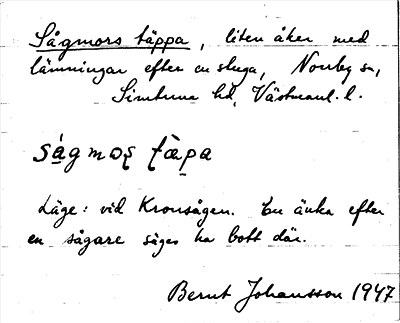 Sågmors täppa, liten åker med
lämningar efter en stuga, Norrby sn,
Simtuna hd, Västmanl. l.
ságmoʂ tὰpa
Läge: vid Kronsågen. En änka efter
en sågare säges ha bott där.
Bernt Johansson 1947